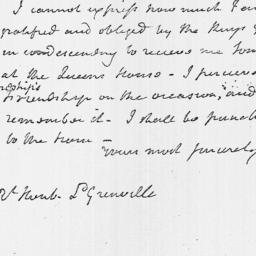 I cannot express how much I am
gratified and obliged by the Kings
in condescending to receive me
at the Queens House - I perceive
friendship on the occasion, and
remember it - I shall be punct
to the hour -
yours most sincerely
Rt Honb. Ld Grenville